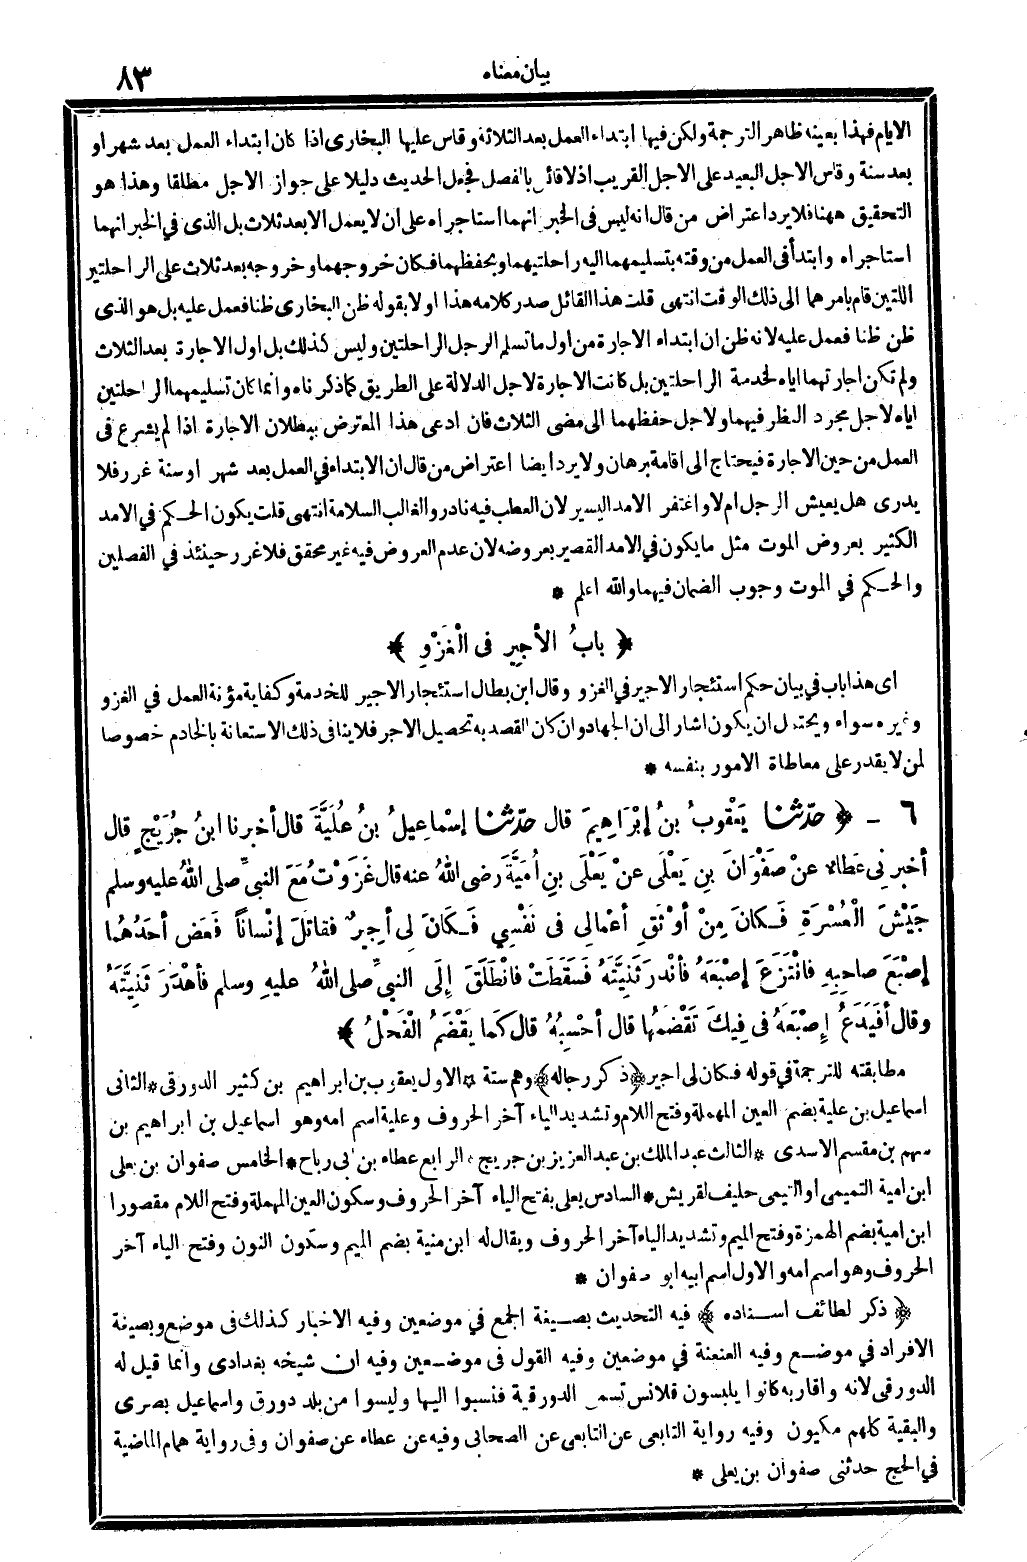 بيان معناه
٨٣
الايام فهذا بعينه ظاهر الترجمة ولكن فيها ابتداء العمل بعد الثلاثة وقاس عليها البخارى اذا كان ابتداء العمل بعد شهر او
بعد سنة وقاس الاجل البعيد على الاجل القريب اذ لا قائل بالفصل فجعل الحديث دليلا على جواز الاجل مطلقا وهذا هو
التحقيق ههنا فلا يرد اعتراض من قال انه ليس فى الخبر انهما استاجراه على ان لا يعمل الا بعد ثلاث بل الذى فى الخبر انهما
استاجراه وابتدأ فى العمل من وقته بتسليمهما اليه راحلتيهما ويحفظهما فكان خروجهما وخروجه بعد ثلاث على الراحلتين
اللتين قام بامرهما الى ذلك الوقت انتهى قلت هذا القائل صدر كلامه هذا اولا بقوله ظن البخارى ظنا فعمل عليه بل هو الذى
ظن ظنا فعمل عليه لانه ظن ان ابتداء الاجارة من اول ما تسلم الرجل الراحلتين وليس كذلك بل اول الاجارة بعد الثلاث
ولم تكن اجارتهما اياه لخدمة الراحلتين بل كانت الاجارة لاجل الدلالة على الطريق كما ذكرناه وانما كان تسليمهما الراحلتين
اياه لاجل مجرد النظر فيهما ولاجل حفظهما الى مضى الثلاث فان ادعى هذا المعترض ببطلان الاجارة اذا لم يشرع فى
العمل من حين الاجارة فيحتاج الى اقامة برهان ولا يرد ايضا اعتراض من قال ان الابتداء فى العمل بعد شهر او سنة غرر فلا
يدرى هل يعيش الرجل ام لا واغتفر الامد اليسير لان العطب فيه نادر والغالب السلامة انتهى قلت يكون الحكم فى الامد
الكثير بعروض الموت مثل ما يكون فى الامد القصير بعروضه لان عدم العروض فيه غير محقق فلا غرر حينئذ فى الفصلين
والحكم فى الموت وجوب الضمان فيهما والله اعلم *
﴿ بابُ الأجِيرِ فى الْغَزْوِ ﴾
اى هذا باب فى بيان حكم استئجار الاجير فى الغزو وقال ابن بطال استئجار الاجير للخدمة وكفاية مؤنة العمل فى الغزو
وغيره سواء ويحتمل ان يكون اشار الى ان الجهاد وان كان القصد به تحصيل الاجر فلا ينافى ذلك الاستعانة بالخادم خصوصا
لمن لا يقدر على معاطاة الامور بنفسه *
٦ _ ﴿ حدّثنا يَعْقُوبُ بنُ إبْرَاهِيمَ قال حدّثنا إسْماعِيلُ بنُ عُلَيَّةَ قال أخبرنا ابنُ جُرَيْجٍ قال
أخبرنى عَطاء عنْ صَفْوَانَ بنِ يَعْلَى عنْ يَعْلَى بنِ اُمَيَّةَ رضى اللهُ عنه قال غَزَوْتُ مَعَ النبيِّ صلى اللهُ عليه وسلم
جَيْشَ الْعُسْرَةِ فَكانَ مِنْ أوْثَقِ أعْمالى فى نَفْسِي فَكَانَ لِى أجِيرٌ فقاتَلَ إنْساناً فَعَض أحَدُهُما
إصْبَعَ صاحِبِهِ فانْتَزَعَ إصْبَعَهُ فأنْدرَ ثَنِيَّتَهُ فَسَقَطَتْ فانْطَلَقَ إلَى النبيِّ صلى اللهُ عليهِ وسلم فأهْدَرَ ثَنِيَّتَهُ
وقال أفَيَدَعُ إصْبَعَهُ فى فِيكَ تَقْضَمُها قال أحْسِبُهُ قال كَما يَقْضَمُ الْفَحْلُ ﴾
مطابقته للترجمة فى قوله فكان لى اجير ﴿ذكر رجاله﴾ وهم ستة * الاول يعقوب بن ابراهيم بن كثير الدورقى * الثانى
اسماعيل بن علية بضم العين المهملة وفتح اللام وتشديد الياء آخر الحروف وعلية اسم امه وهو اسماعيل بن ابراهيم بن
سهم بن مقسم الاسدى * الثالث عبد الملك بن عبد العزيز بن جريج * الرابع عطاء بن ابى رباح * الخامس صفوان بن يعلى
ابن امية التميمى او التيمى حليف لقريش * السادس يعلى بفتح الياء آخر الحروف وسكون العين المهملة وفتح اللام مقصورا
ابن امية بضم الهمزة وفتح الميم وتشديد الياء آخر الحروف ويقال له ابن منية بضم الميم وسكون النون وفتح الياء آخر
الحروف وهو اسم امه والاول اسم ابيه ابو صفوان *
﴿ ذكر لطائف اسناده ﴾ فيه التحديث بصيغة الجمع فى موضعين وفيه الاخبار كذلك فى موضع وبصيغة
الافراد فى موضع وفيه العنعنة فى موضعين وفيه القول فى موضعين وفيه ان شيخه بغدادى وانما قيل له
الدورقى لانه واقاربه كانوا يلبسون قلانس تسمى الدورقية فنسبوا اليها وليسوا من بلد دورق واسماعيل بصرى
والبقية كلهم مكيون وفيه رواية التابعى عن التابعى عن الصحابى وفيه عن عطاء عن صفوان وفى رواية همام الماضية
فى الحج حدثنى صفوان بن يعلى *